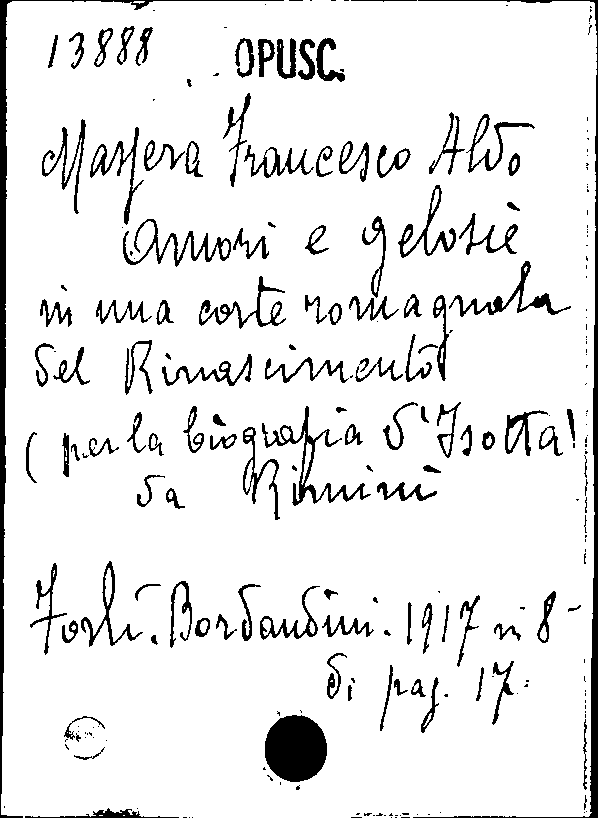 13888 OPUSC.
Massera Francesco Aldo
Amori e gelosie
in una corte romagnola
del Rinascimento
(per la biografia d'Isotta
da Rimini
Forlì. Bordandini. 1917 in 8-
di pag. 17.